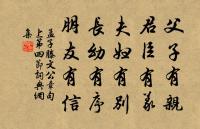 父子有親
君臣有義
夫婦有別
長幼有序
朋友有信
孟子滕文公章句
上第四節詞典網
集